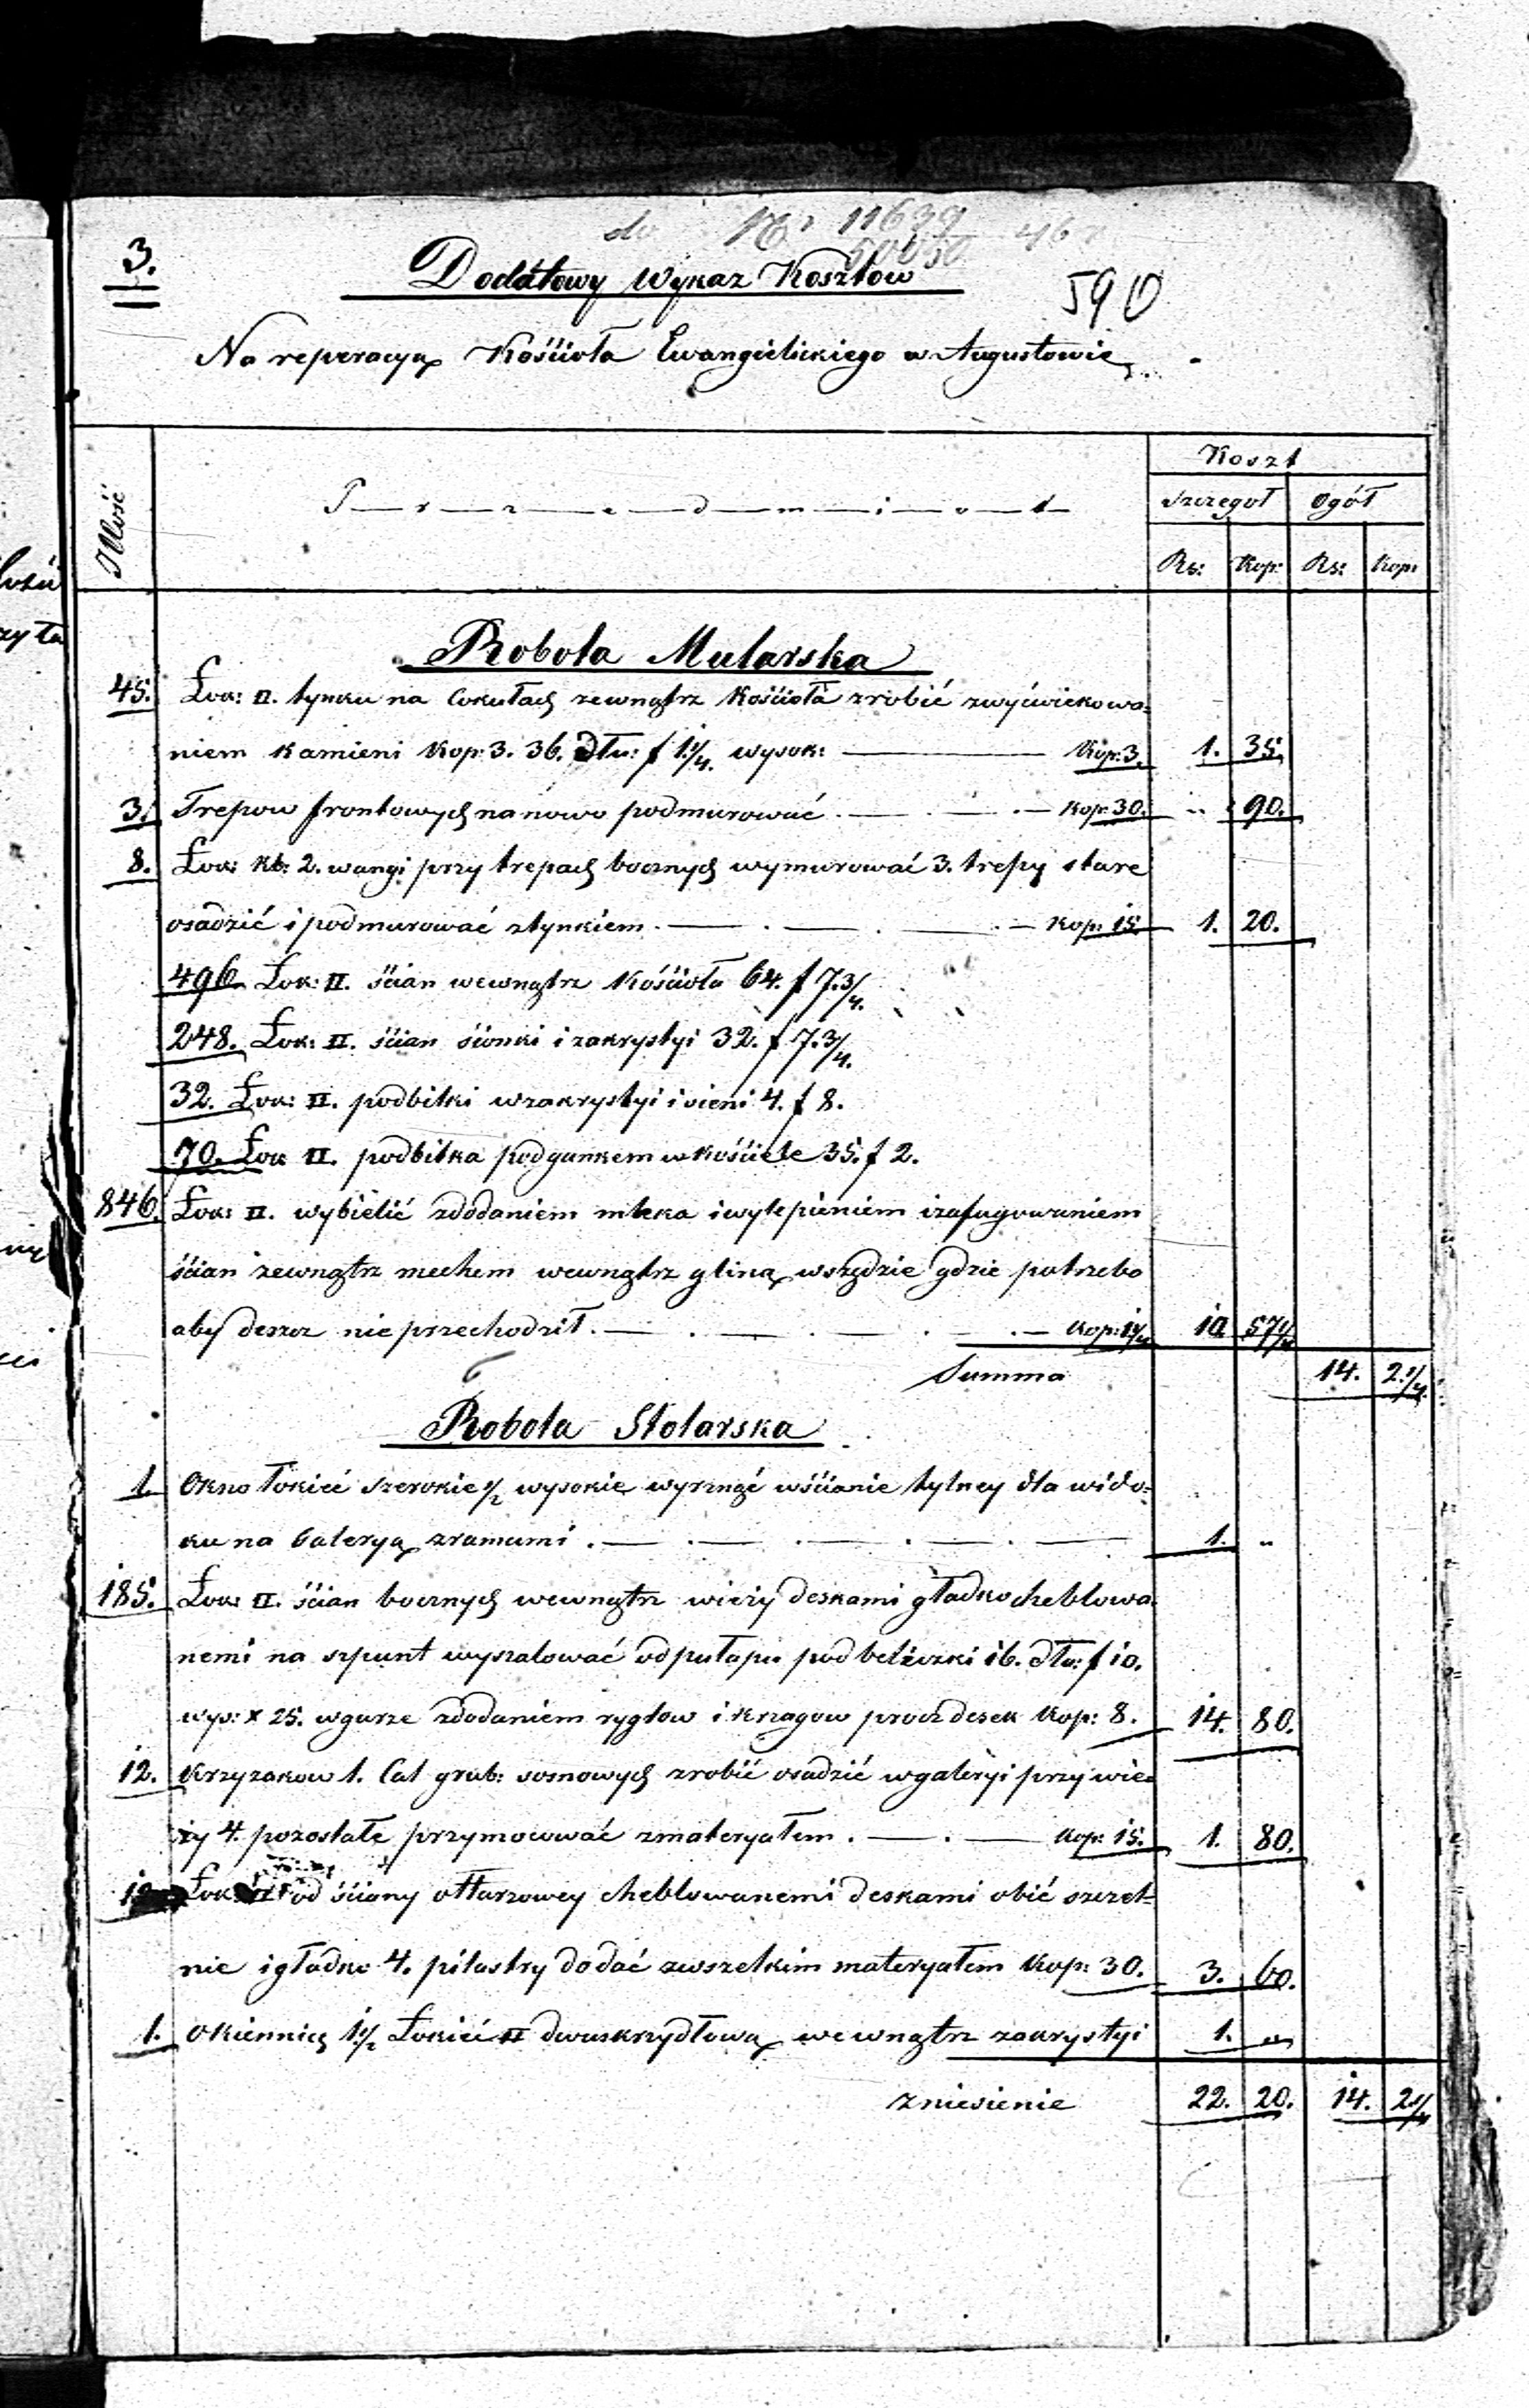 do Nr 11639
50050
3.
Dodátowy Wykaz Kosztow
590
Na reperacyą Kościoła Ewangielickiego w Augustowie
Koszt
Ilość P—r—z—e—d—m—i—o—t szczegoł ogół
Rs: Kop: Rs: Kop:
Robota Mularska
45. Łok: II. tynku na Cokułach zewnątrz Kościoła zrobić zwyćwiekowa=
niem kamieni Kop: 3. 36. Dłu: f 1 1/4. wysok: — Kop: 3. 1. 35.
3. Trepow frontowych na nowo podmurować — Kop: 30. " 90.
8. Łok: kb: 2. wangi przy trepach bocznych wymurować 3. trepy stare
osadzić i podmurować z tynkiem — Kop: 15. 1. 20.
496. Łok: II. ścian wewnątrz Kościoła 64. f 7. 3/4.
248. Łok: II. ścian sionki i zakrystyi 32. f 7. 3/4.
32. Łok: II. podbitki w zakrystyi i sieni 4. f 8.
70. Łok II. podbitka pod gankem w Kościele 35. f 2.
846. Łok: II. wybielić z dodaniem mleka i wylepieniem i zafugowaniem
ścian zewnątrz mechem wewnątrz gliną wszędzie gdzie potrzeba
aby deszcz nie przechodził — Kop: 1 1/4 10 57 1/4
Summa 14. 2. 1/4.
Robota Stolarska
1. Okno łokieć szerokie 1/2 wysokie wyrznąć w ścianie tylney dla wido=
ku na Galeryą z ramami — 1. "
185. Łok: II. ścian bocznych wewnątrz wieży deskami gładko cheblowa=
nemi na szpunt wyszalować od pułapu pod beleczki 16. dłu: f 10.
wys: x 25. w gurze z dodaniem ryglow i krzagow procz desek Kop: 8. 14. 80.
12. Krzyzakow 1. Cal grub: sosnowych zrobić osadzić w galeryi przy wie=
ży 4. pozostałe przymowwać z materyałem — Kop: 15. 1. 80.
12 Łok: II od ściany ołtarzowey cheblowanemi deskami obić szczel=
nie i gładko 4. pilastry dodać z wszelkim materyałem Kop: 30. 3. 60.
1. Okiennicę 1 1/2 Łokieć II dwuskrzydłową wewnątrz zakrystyi 1. "
zniesienie 22. 20. 14. 2 1/4